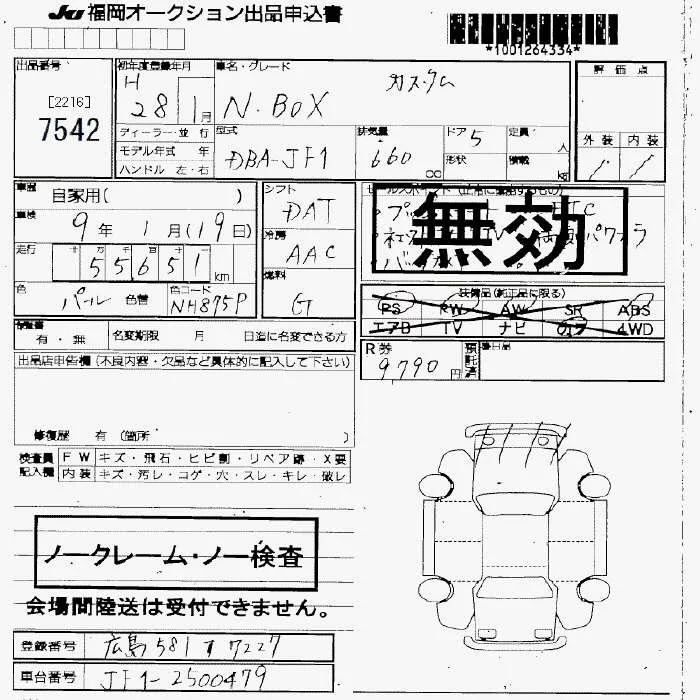 JU 福岡オークション出品申込書
*1001264334*
出品番号
[2216]
7542
初年度登録年月
H 28 1月
車名・グレード
カスタム
N-BOX
評価点
外装 内装
ディーラー・並行
モデル年式 年
ハンドル 左・右
型式
DBA-JF1
排気量
660
cc
ドア 5
形状
定員 人
積載 kg
車歴
自家用( )
車検
9年 1月(19日)
走行
十 万 千 百 十
55651 km
色
パール 色替
色コード
NH875P
シフト
DAT
冷房
AAC
燃料
G
セールスポイント(正常に作動するもの)
無効
装備品(純正品に限る)
PS PW AW SR ABS
エアB TV ナビ カワ 4WD
有・無 名変期限 月 日迄に名変できる方
R券
9,790円
預託済
後日品
出品店申告欄(不良内容・欠品など具体的に記入して下さい)
修復歴 有 (箇所 )
検査員記入欄
FW キズ・飛石・ヒビ割・リペア跡・X要
内装 キズ・汚レ・コゲ・穴・スレ・キレ・破レ
ノークレーム・ノー検査
会場間陸送は受付できません。
登録番号 広島 581 す 7227
車台番号 JF1-2500479